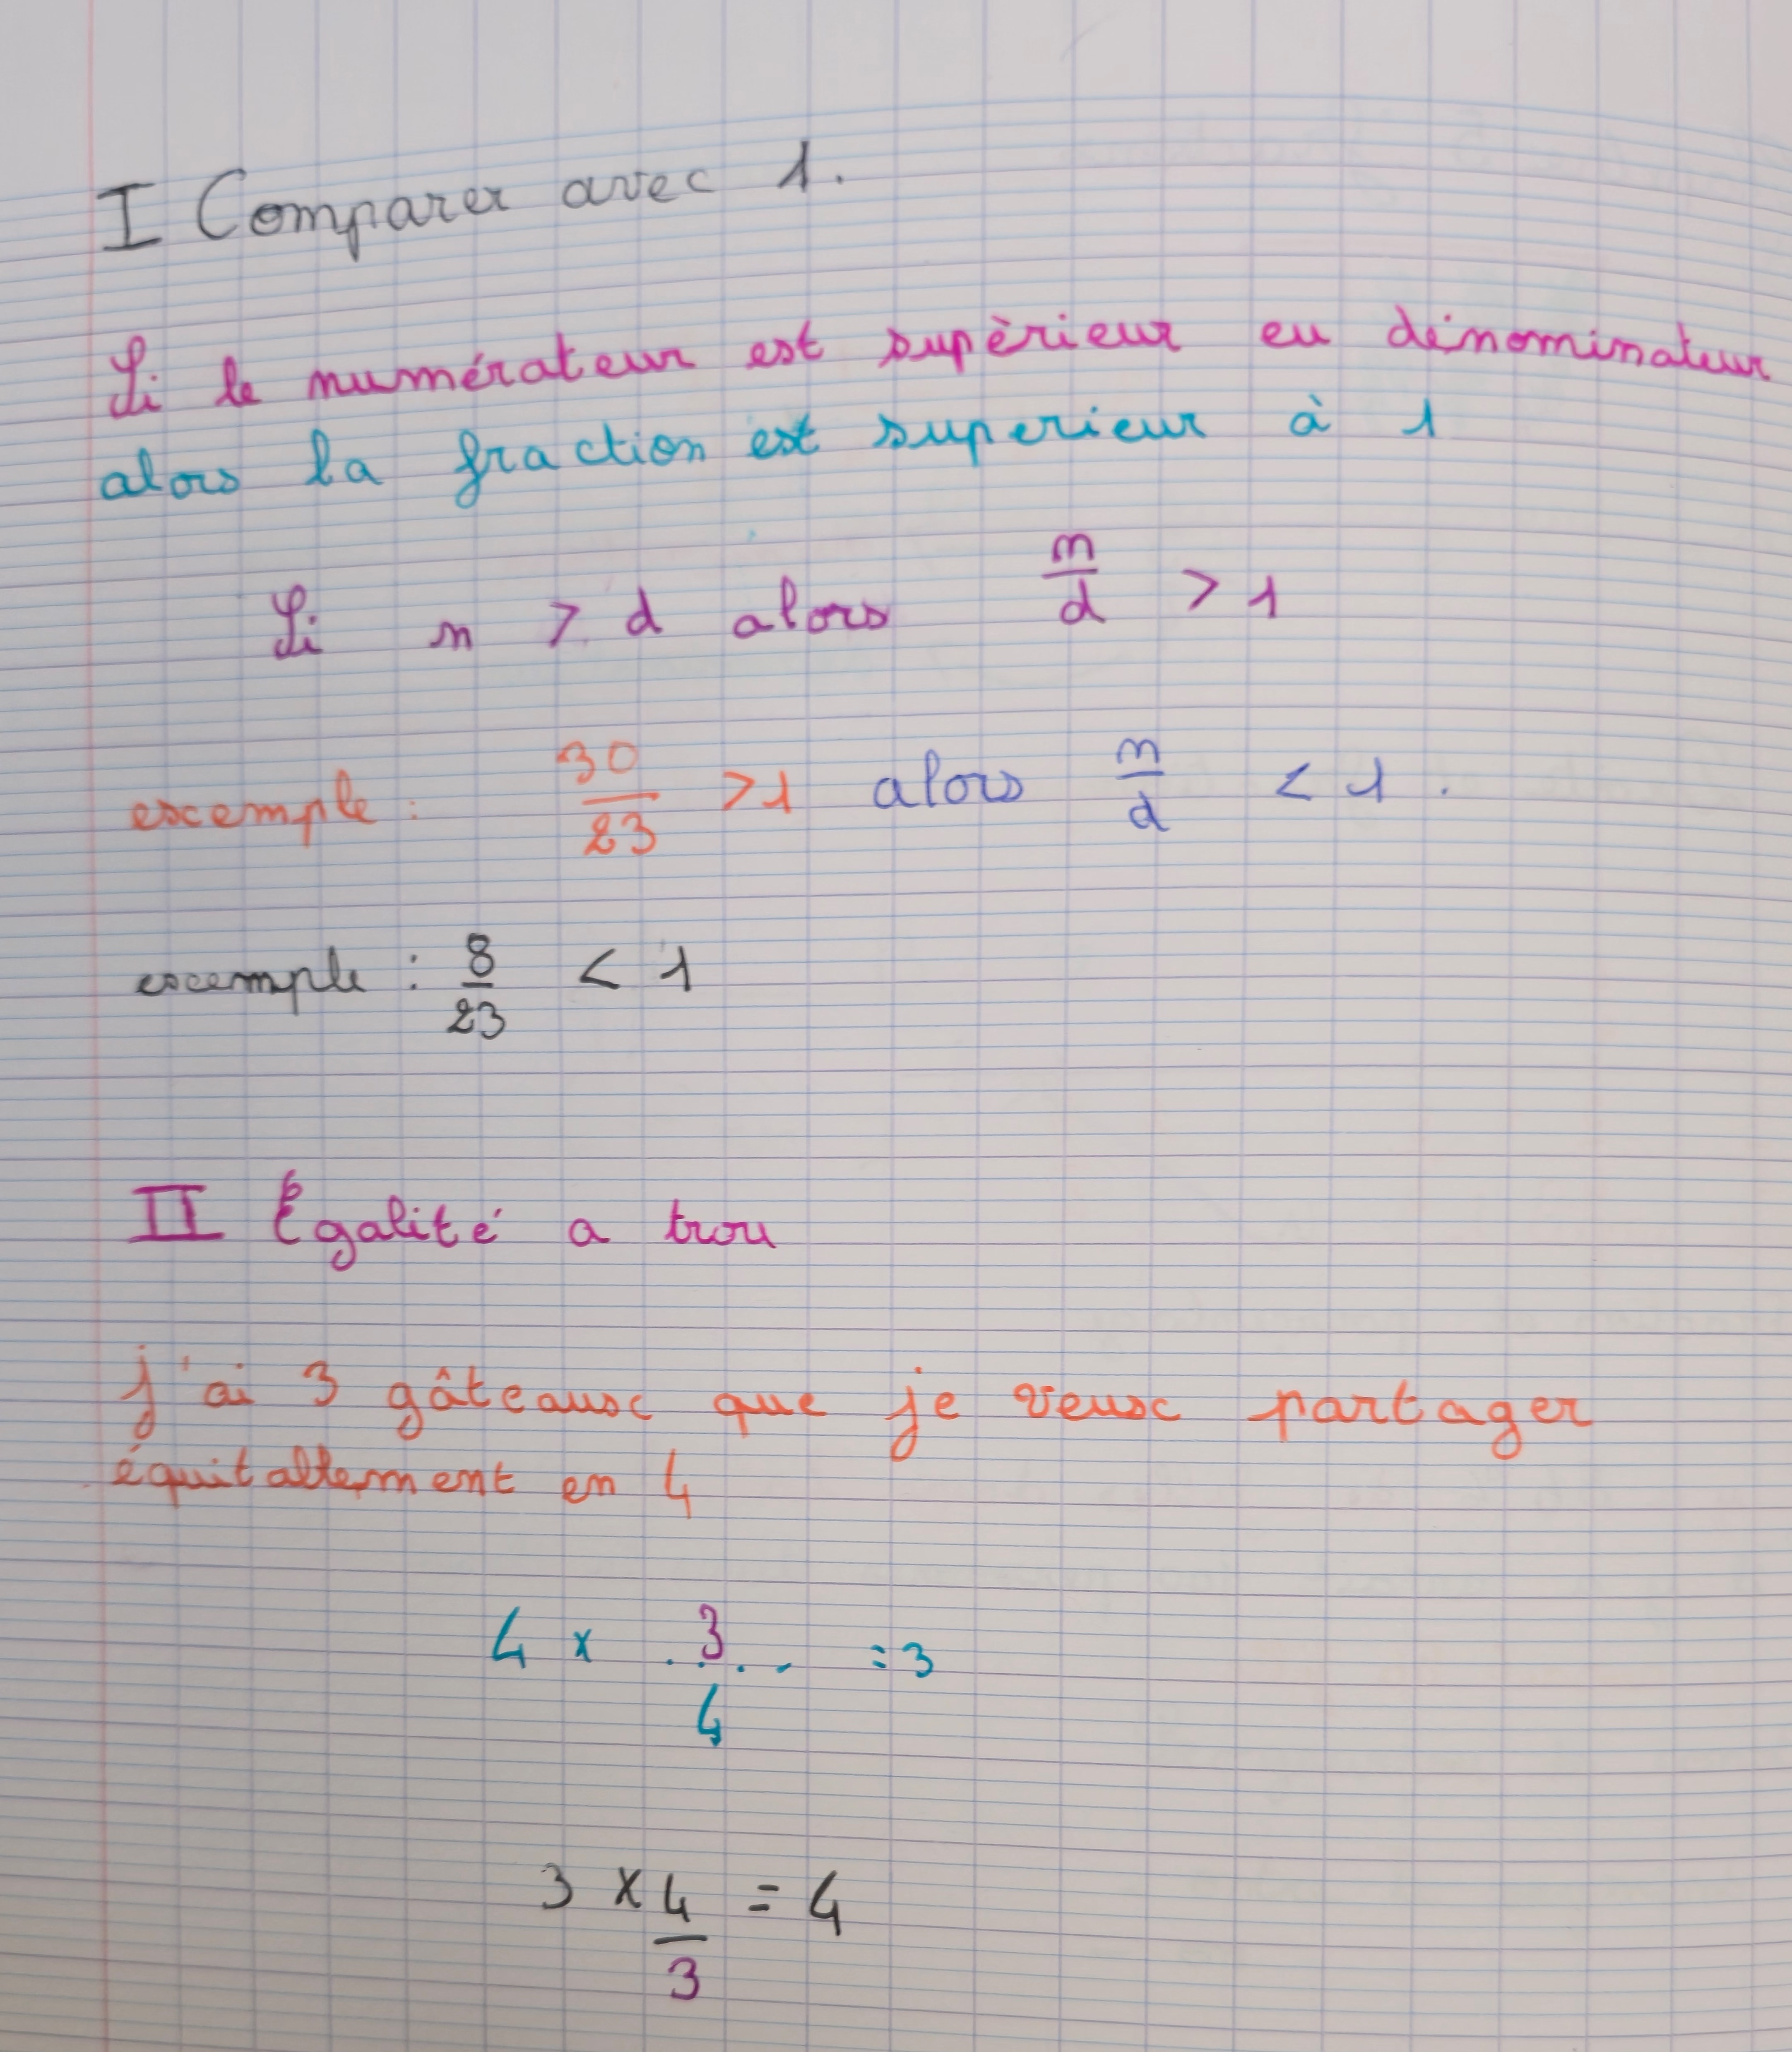 I Comparer avec 1.
Si le numérateur est supèrieur eu dénominateur
alors la fraction est superieur à 1
Si n > d alors n/d > 1
exemple : 30/23 >1 alors n/d < 1.
exemple : 8/23 < 1
II Égalité a trou
j'ai 3 gâteaux que je veux partager
équitablement en 4
4 x ..3.. = 3
4
3 x 4/3 = 4